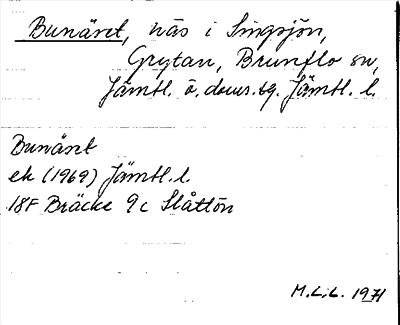 Bunäset, näs i Singsjön,
Grytan, Brunflo sn,
Jämtl. ö. doms.tg. Jämtl. l.
Bunäset
ek (1969) Jämtl. l.
18F Bräcke 9c Slåttön
M.L.L. 1971